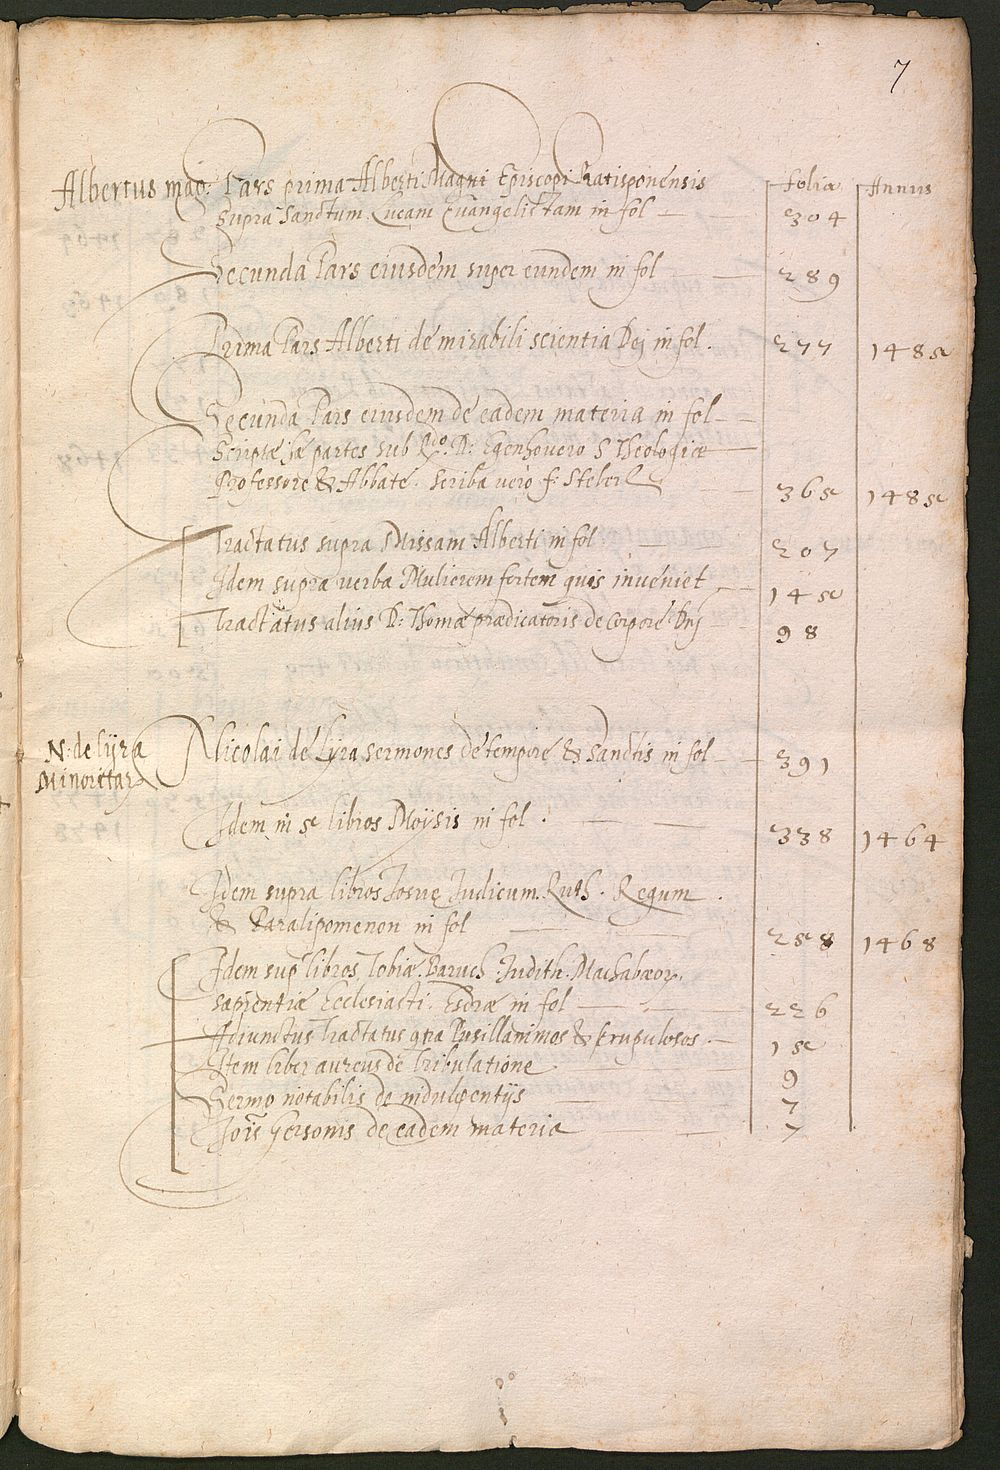 7
Albertus mag: Pars prima Alberti Magni Episcopi Ratisponensis Folia Annus
supra Sanctum Lucam Euangelistam in fol 304
Secunda Pars eiusdem super eundem in fol 289
Prima Pars Alberti de mirabili scientia Dej in fol. 277 1485
Secunda Pars eiusdem de eadem materia in fol
Scriptæ hæ partes sub Rdo. D: Egenhovero S Theologiæ
Professore & Abbate. Scriba vero f: Steberl 365 1485
Tractatus supra Missam Alberti in fol 207
Idem supra verba Mulierem fortem quis inveniet 145
Tractatus alius D: Thomæ prædicatoris de Corpore Dnj 98
N: de Lÿra
Minoritar
Nicolai de Lÿra sermones de tempore & Sanctis in fol 391
Idem in 5 libros Moÿsis in fol. 338 1464
Idem supra libros Iosuę Iudicum. Ruth. Regum.
& Paralipomenon in fol 258 1468
Idem sup libros Tobiæ. Baruch. Judith. Machabæor.
sapientiæ Ecclesiasti. Esdræ in fol 226
Adiunctus Tractatus qtra Pusillanimos & scrupulosos. 15
Item liber aureus de Tribulatione 9
Sermo notabilis de indulgentijs 7
Jois Gersonis de eadem materia 7